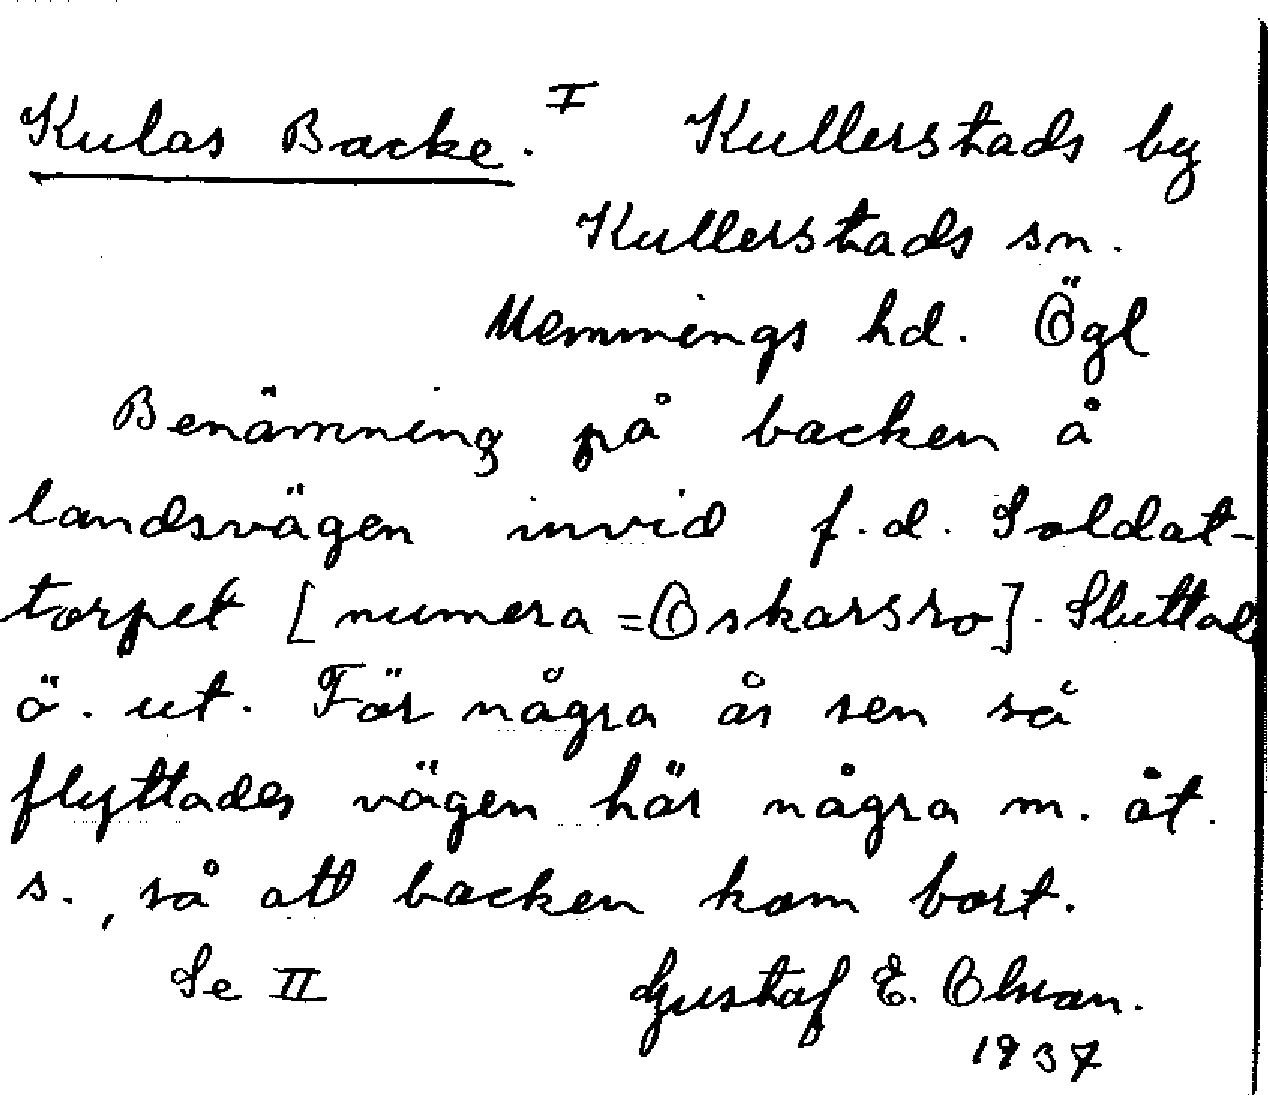 Kulas Backe. I Kullerstads by
Kullerstads sn.
Memmings hd. Ögl
Benämning på backen å
landsvägen invid f.d. Soldat-
torpet [numera = Oskarsro]. Sluttad
ö. ut. För några år sen så
flyttades vägen här några m. åt.
s., så att backen kom bort.
Se II Gustaf E. Olsson.
1937